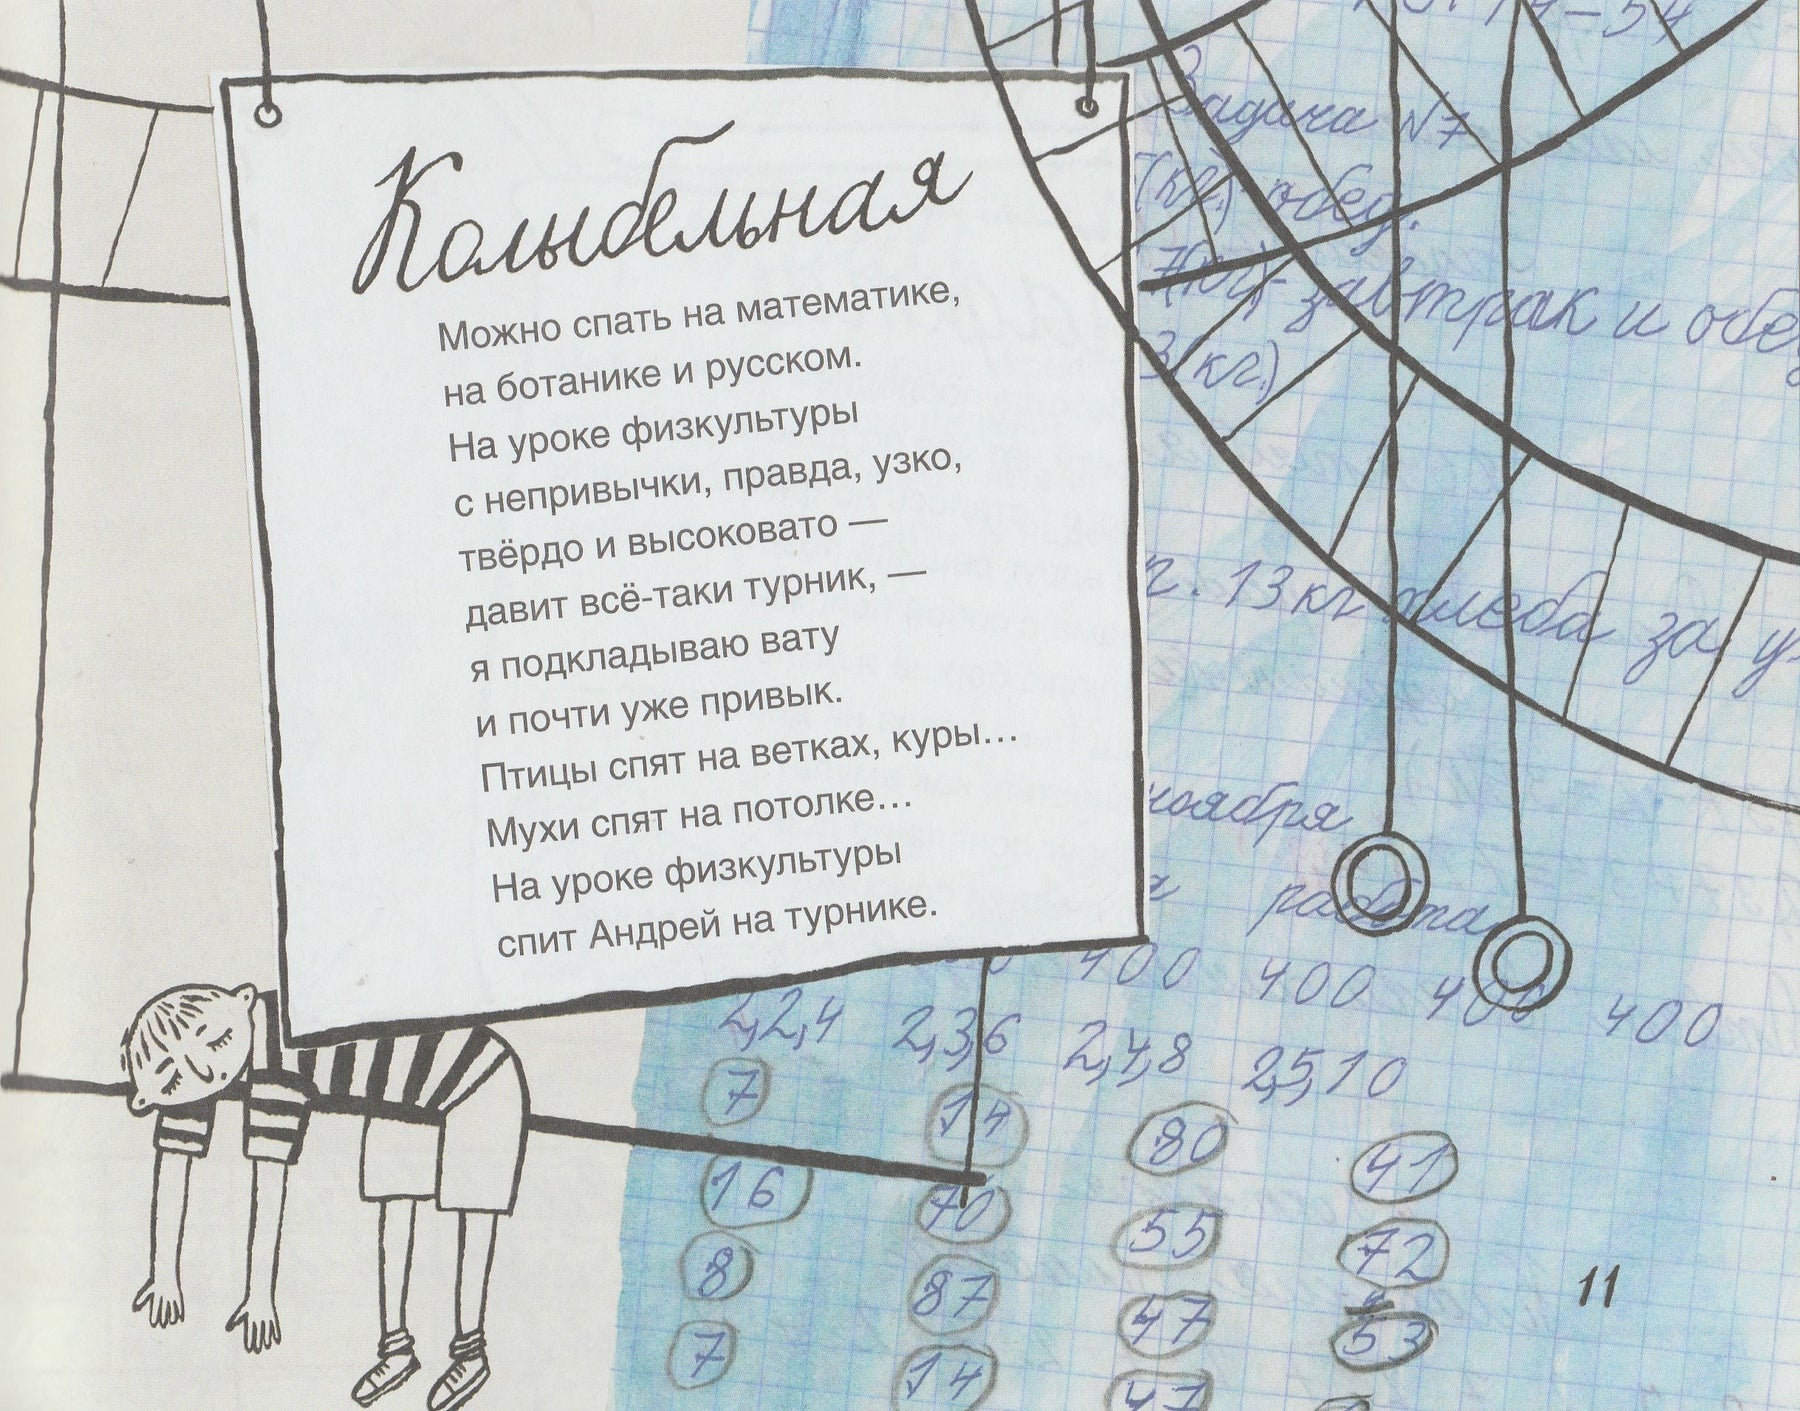 Колыбельная
Можно спать на математике,
на ботанике и русском.
На уроке физкультуры
с непривычки, правда, узко,
твёрдо и высоковато —
давит всё-таки турник, —
я подкладываю вату
и почти уже привык.
Птицы спят на ветках, куры…
Мухи спят на потолке…
На уроке физкультуры
спит Андрей на турнике.
14-54
Задача №7
(кг.) обед.
7(кг)- завтрак и обе
3(кг.)
г. 13 кг хлеба за у
ноября
работа
400 400 400 400
2,2,4 2,3,6 2,4,8 2,5,10
7 14 80 41
16 70 55 72
8 87 47 53
7 14 47
11